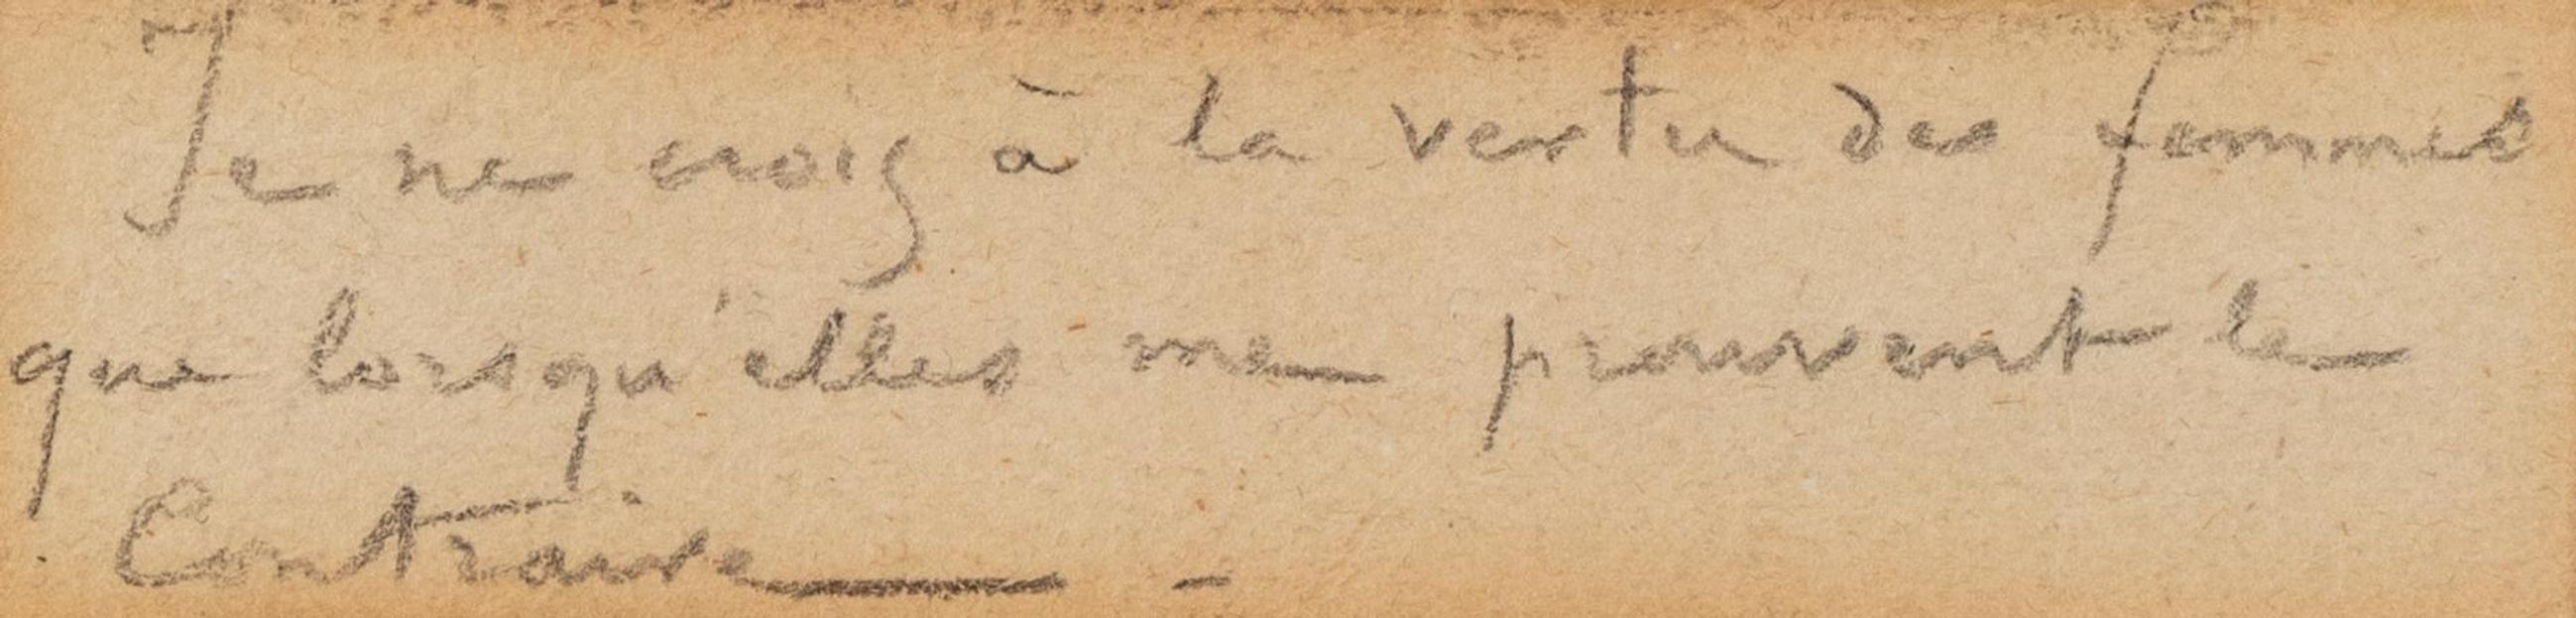 Je ne crois à la vertu des femmes
que lorsqu'elles me prouvent le
Contraire — -